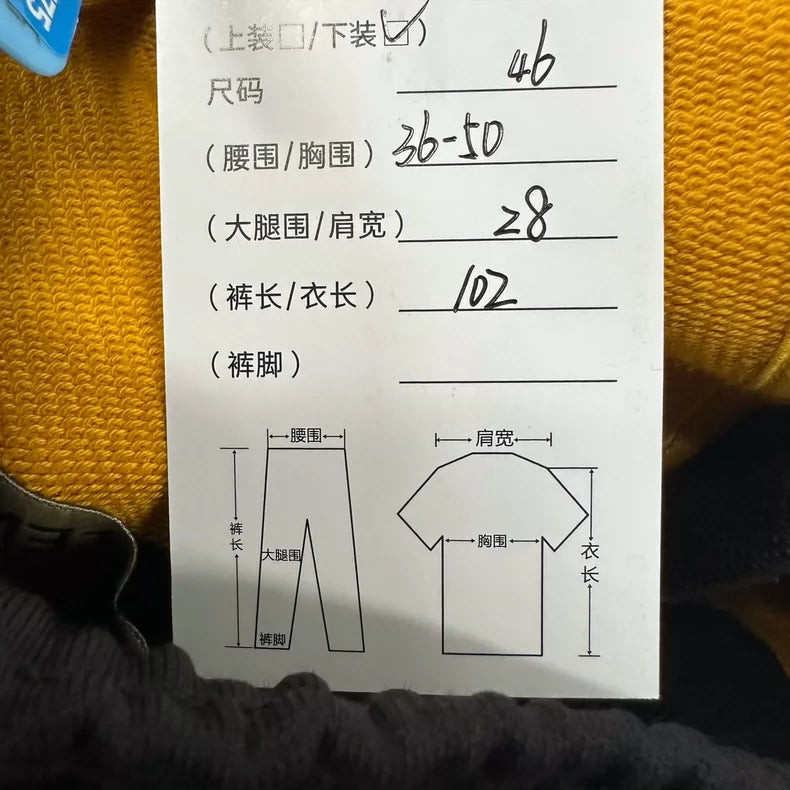 25
(上装□/下装☑)
尺码 46
(腰围/胸围) 36-50
(大腿围/肩宽) 28
(裤长/衣长) 102
(裤脚)
腰围
肩宽
裤长
大腿围
胸围
衣长
裤脚